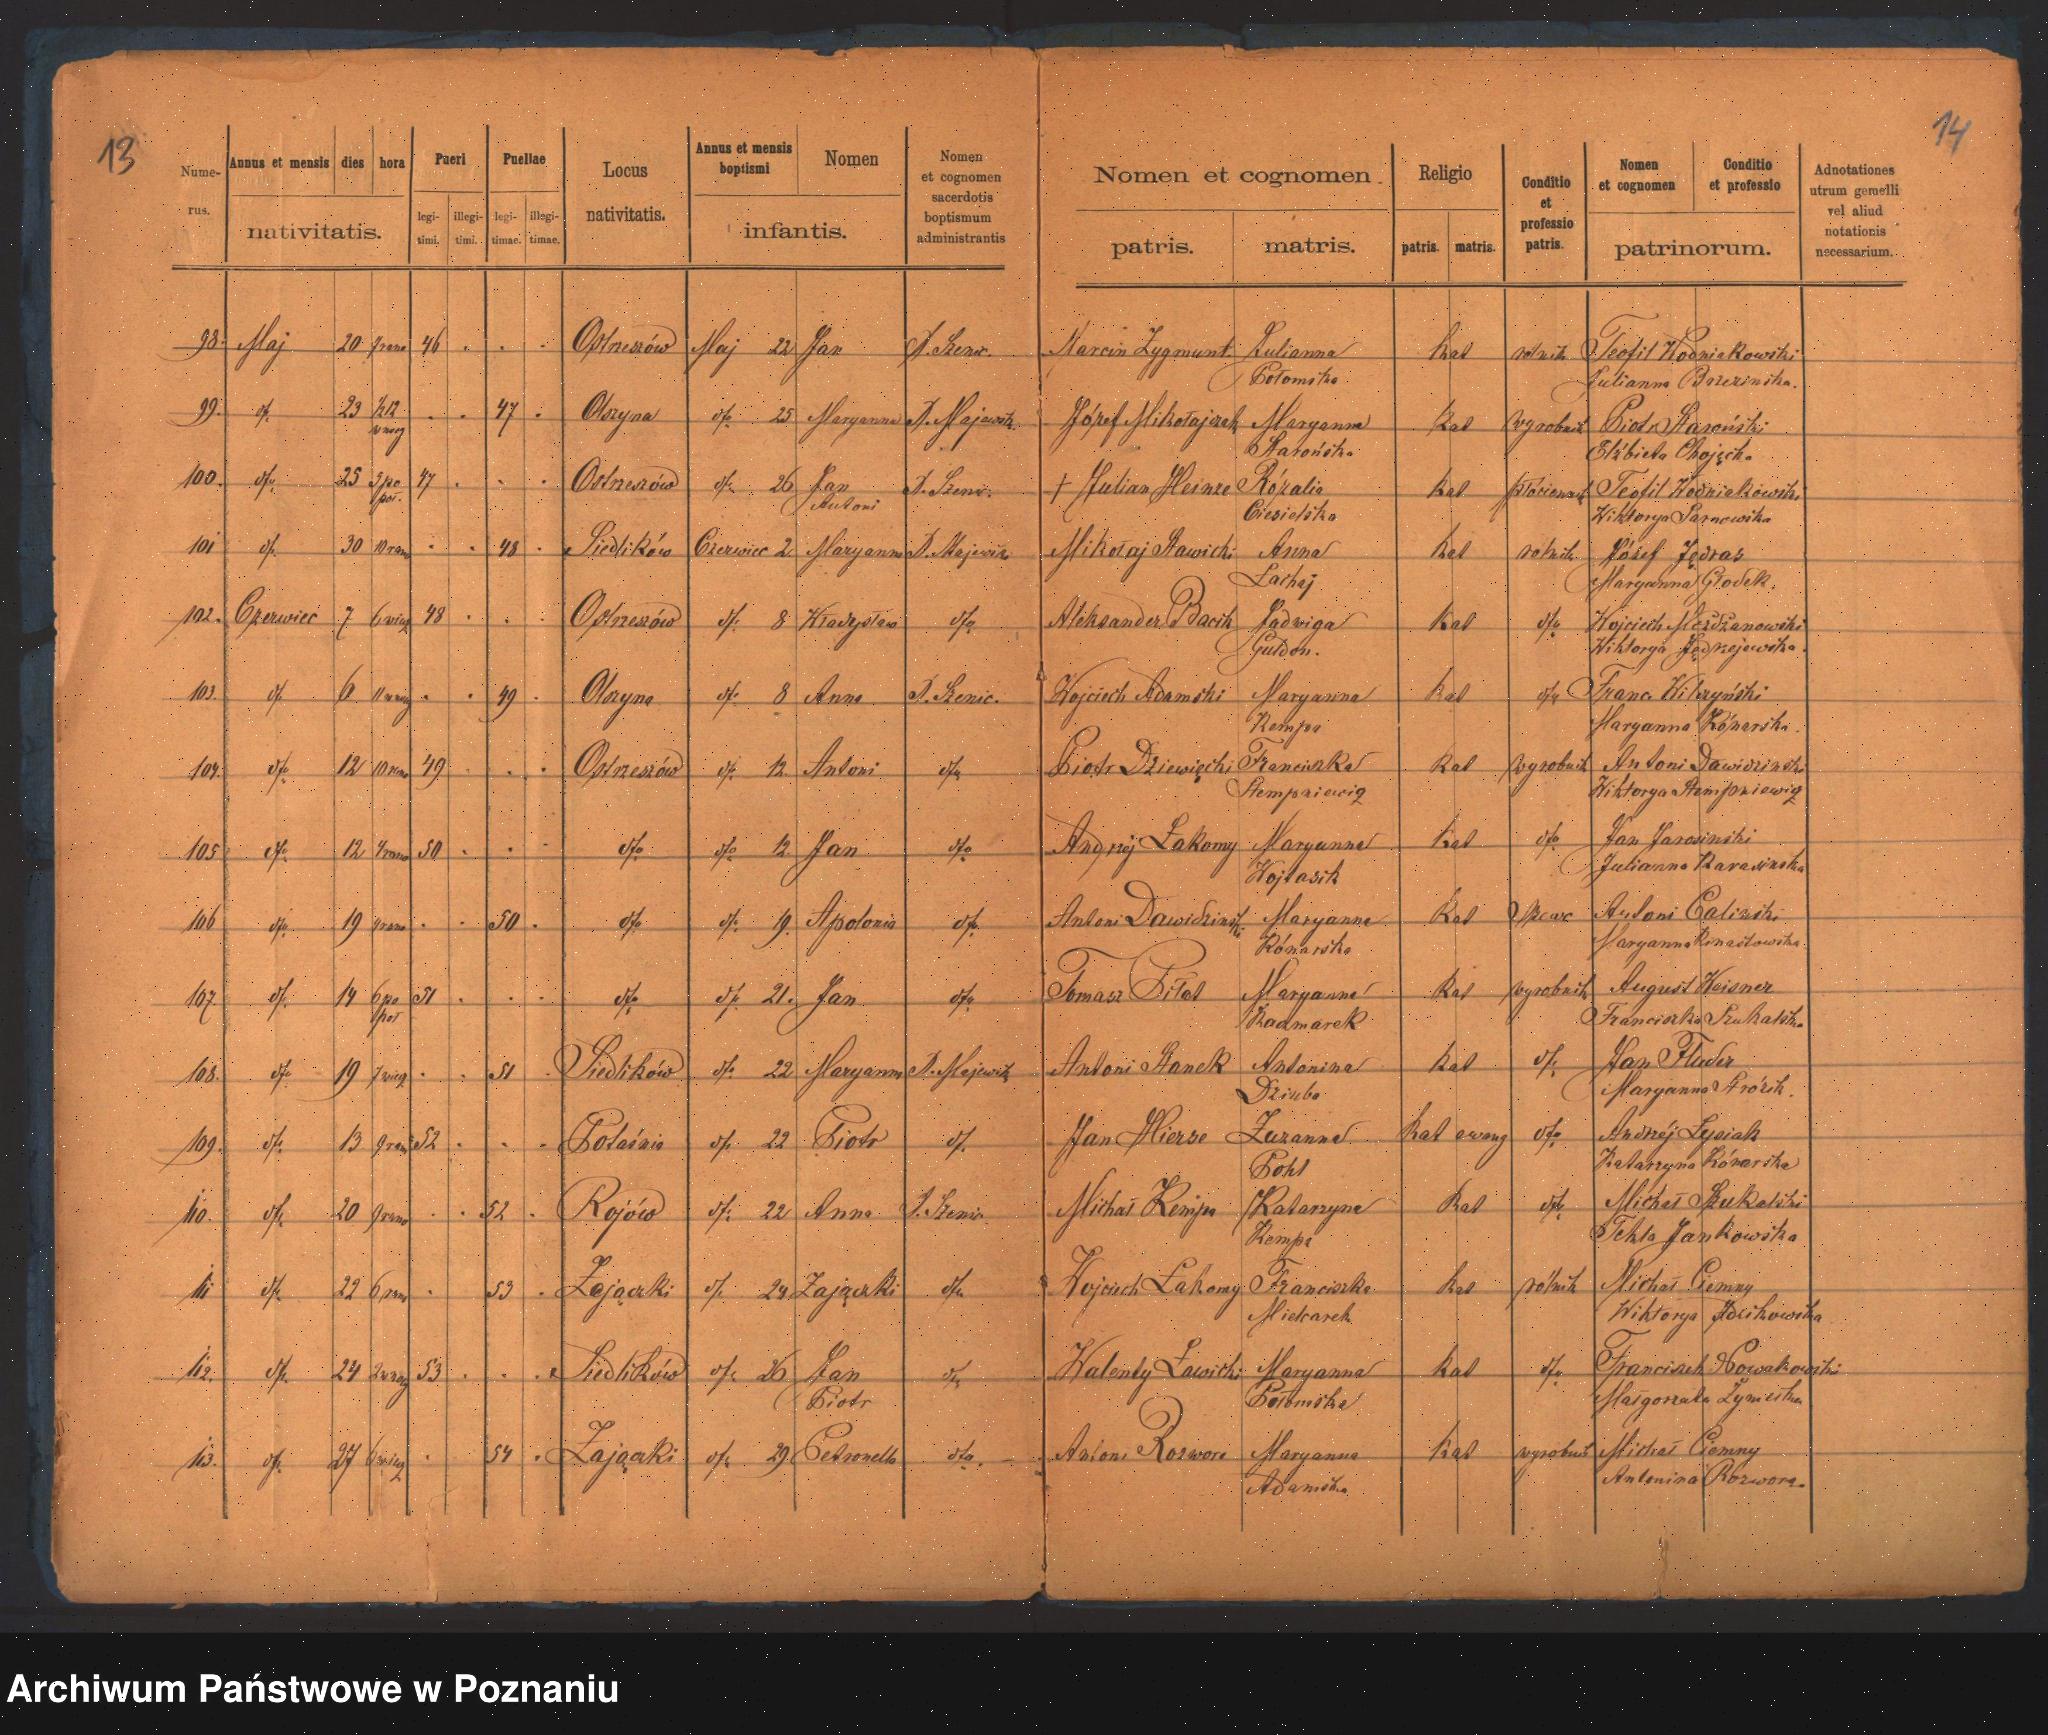 13
14
Nume-
rus.
Annus et mensis dies hora
nativitatis.
Pueri
legi-
timi.
illegi-
timi.
Puellae
legi-
timae.
illegi-
timae.
Locus
nativitatis.
Annus et mensis
boptismi
Nomen
infantis.
Nomen
et cognomen
sacerdotis
boptismum
administrantis
Nomen et cognomen
patris. matris.
Religio
patris. matris.
Conditio
et
professio
patris.
Nomen
et cognomen
Conditio
et professio
patrinorum.
Adnotationes
utrum gemelli
vel aliud
notationis
necessarium.
98. Maj 20 46 . . . Ostrzeszów Maj 22 Jan Marcin Zygmunt Julianna Kat rolnik Teofil Wodniakowski
Potomska Julianna Brzezinska.
99. 23 . . 47 . Olszyna 25 Maryanna X. Majewski Józef Mikołajczak Maryanna Kat wyrobnik Piotr Staroński
Starońska Elżbieta Chojęcka
100. 25 5 po 47 . . . Ostrzeszów 26 Jan † Julian Heinze Rózalia Kat Teofil Wodniakowski
poł. Antoni Ciesielska Wiktorya Sarnowska
101 30 10 rano . . 48 . Siedlików Czerwiec 2 Maryanna X. Majewski Mikołaj Sławicki Anna Kat rolnik Józef Jędras
Lachaj Maryanna Głodek.
102. Czerwiec 7 6 wiecz 48 . . . Ostrzeszów 8 Władysław Aleksander Bacik Jadwiga Kat Wojciech Mężdżanowski
Guldon. Wiktorya Jędrzejewska.
103. 6 . . 49 . Olszyna 8 Anna Wojciech Adamski Maryanna Kat Franc. Wilczyński
Kempa Maryanna Kónarska.
104. 12 10 rano 49 . . . Ostrzeszów 12 Antoni Piotr Dziewięcki Franciszka Kat wyrobnik Antoni Dawidzinski
Stempniewicz Wiktorya Stempniewicz
105 12 50 . . . 12 Jan Andrzej Łakomy Maryanna Kat Jan Jarosinski
Wojtasik Julianna Karasinska
106 19 . . 50 . 19. Apolonia Antoni Dawidzinski Maryanna Kat szewc Antoni Calinski
Kónarska Maryanna
107. 14 6 po 51 . . . 21. Jan Tomasz Piłat Maryanna Kat wyrobnik August Weisner
poł Kaczmarek Franciszka Szukalska
108. 19 7 wiecz . . 51 . Siedlików 22 Maryanna X. Majewski Antoni Stanek Antonina Kat Jan Fluder
Dziuba Maryanna Stróżik.
109. 13 9 rano 52 . . . Potaśnia 22 Piotr Jan Hierse Zuzanna Kat ewang Andrzéj Łysiak
Pohl Katarzyna Kónarska
110. 20 9 rano . . 52 . Rojów 22 Anna Michał Kempa Katarzyna Kat Michał Szukalski
Kempa Tekla Jankowska
111 22 6 rano . . 53 . Zajączki 24 Zajączki Wojciech Łakomy Franciszka Kat rolnik Michał Ciemny
Mielcarek Wiktorya
112. 24 53 . . . Siedlików 26 Jan Walenty Ławicki Maryanna Kat Franciszek Nowakowski
Piotr Małgorzata
113. 27 6 wiecz . . 54 . Zajączki 29 Petronella Antoni Rozwora Maryanna Kat wyrobnik Michał Ciemny
Adamska Antonina Rozwora.
Archiwum Państwowe w Poznaniu